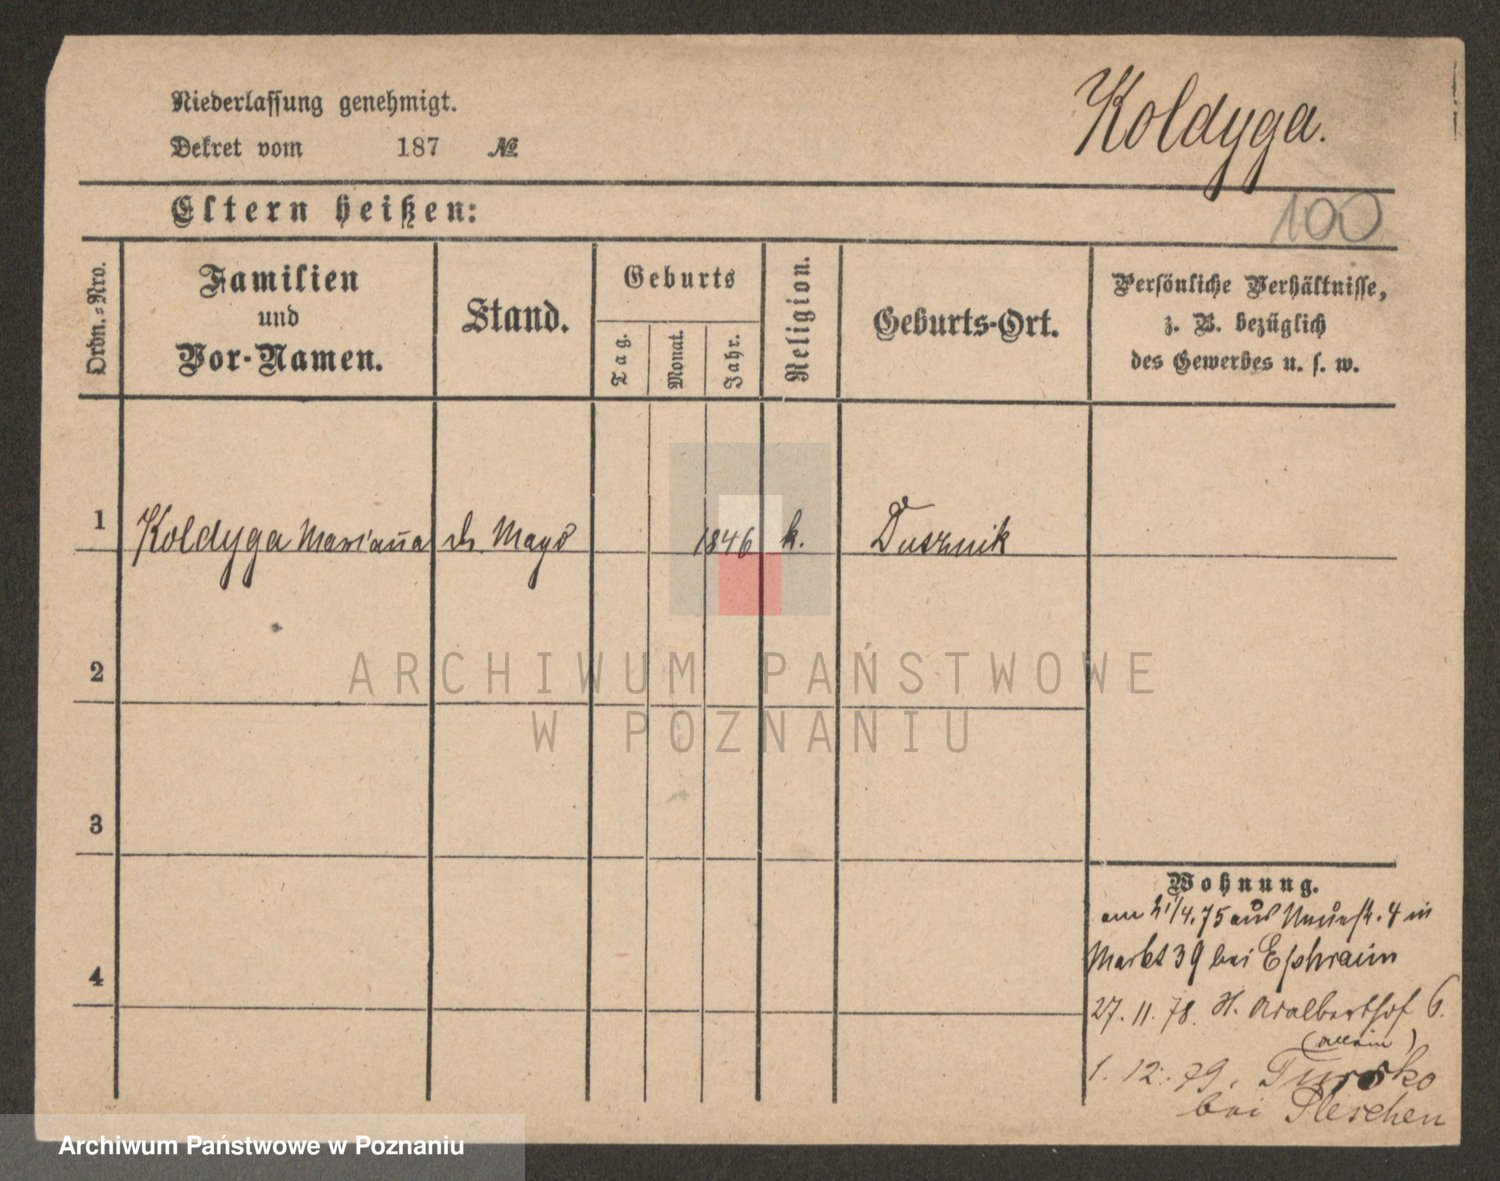 Niederlassung genehmigt.
Dekret vom 187 №
Koldyga.
100
Eltern heißen:
Ordn.-Nro.
Familien
und
Vor-Namen.
Stand.
Geburts
Tag.
Monat.
Jahr.
Religion.
Geburts-Ort.
Persönliche Verhältnisse,
z. B. bezüglich
des Gewerbes u. s. w.
1 Koldyga Marianna 1846 k. Dusznik
2
3
4
Wohnung.
am 21/4.75 aus 4 in
Markt 39 bei Ephraim
27. 11. 78. St. Adalberthof 6.
(allein)
1. 12. 79. Tursko
bei Pleschen
ARCHIWUM PAŃSTWOWE
W POZNANIU
Archiwum Państwowe w Poznaniu